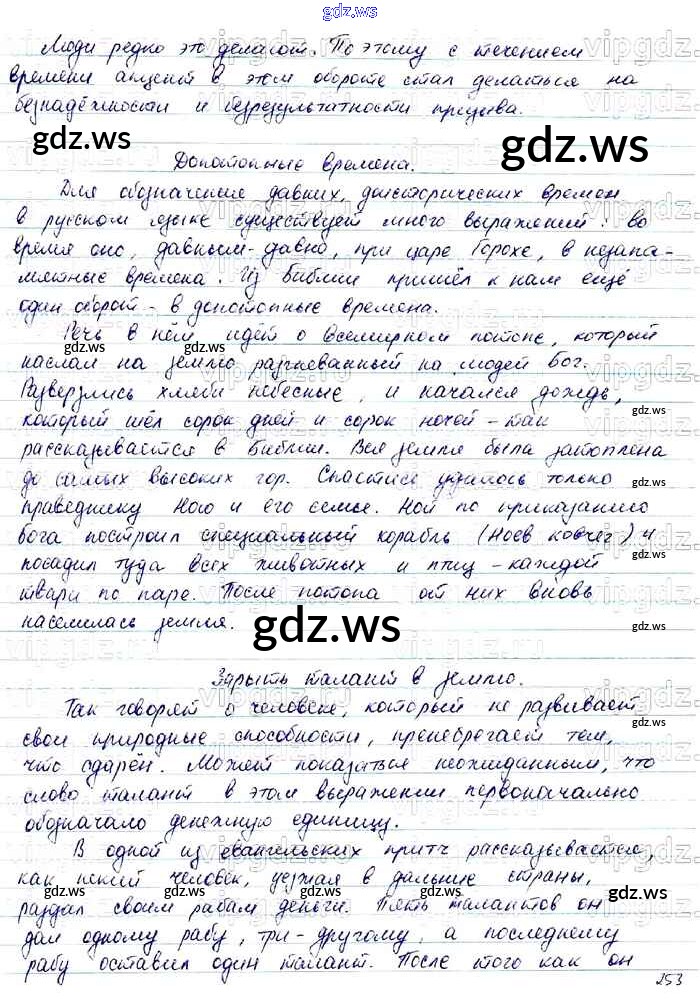 gdz.ws
Люди редко это делают. По этому с течением
времени акцент в этом обороте стал делаться на
безнадёжности и безрезультатности призыва.
gdz.ws gdz.ws
Допотопные времена.
Для обозначения давних, доисторических времен
в русском языке существует много выражений: во
время оно, давным-давно, при царе Горохе, в незапа-
мятные времена. Из Библии пришёл к нам ещё
один оборот - в допотопные времена.
Речь в нём идёт о всемирном потопе, который
наслал на землю разгневанный на людей Бог.
Разверзлись хляби небесные, и начался дождь,
который шёл сорок дней и сорок ночей - так
рассказывается в Библии. Вся земля была затоплена
до самых высоких гор. Спастись удалось только
праведнику Ною и его семье. Ной по приказанию
бога построил специальный корабль (Ноев ковчег) и
посадил туда всех животных и птиц - каждой
твари по паре. После потопа от них вновь
населилась земля.
gdz.ws
Зарыть талант в землю.
Так говорят о человеке, который не развивает
свои природные способности, пренебрегает тем,
что одарён. Может показаться неожиданным, что
слово талант в этом выражении первоначально
обозначало денежную единицу.
В одной из евангельских притч рассказывается,
как некий человек, уезжая в дальние страны,
раздал своим рабам деньги. Пять талантов он
дал одному рабу, три - другому, а последнему
рабу оставил один талант. После того как он
253